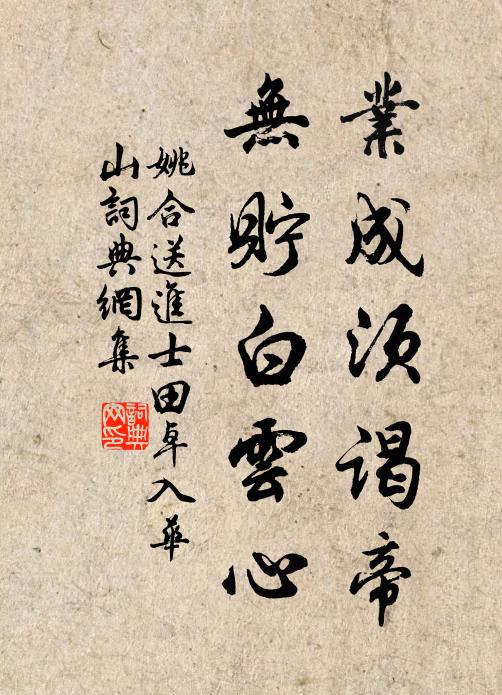 業成須謁帝
無貯白雲心
姚合送進士田卓入華
山詞典網集
詞典
网印